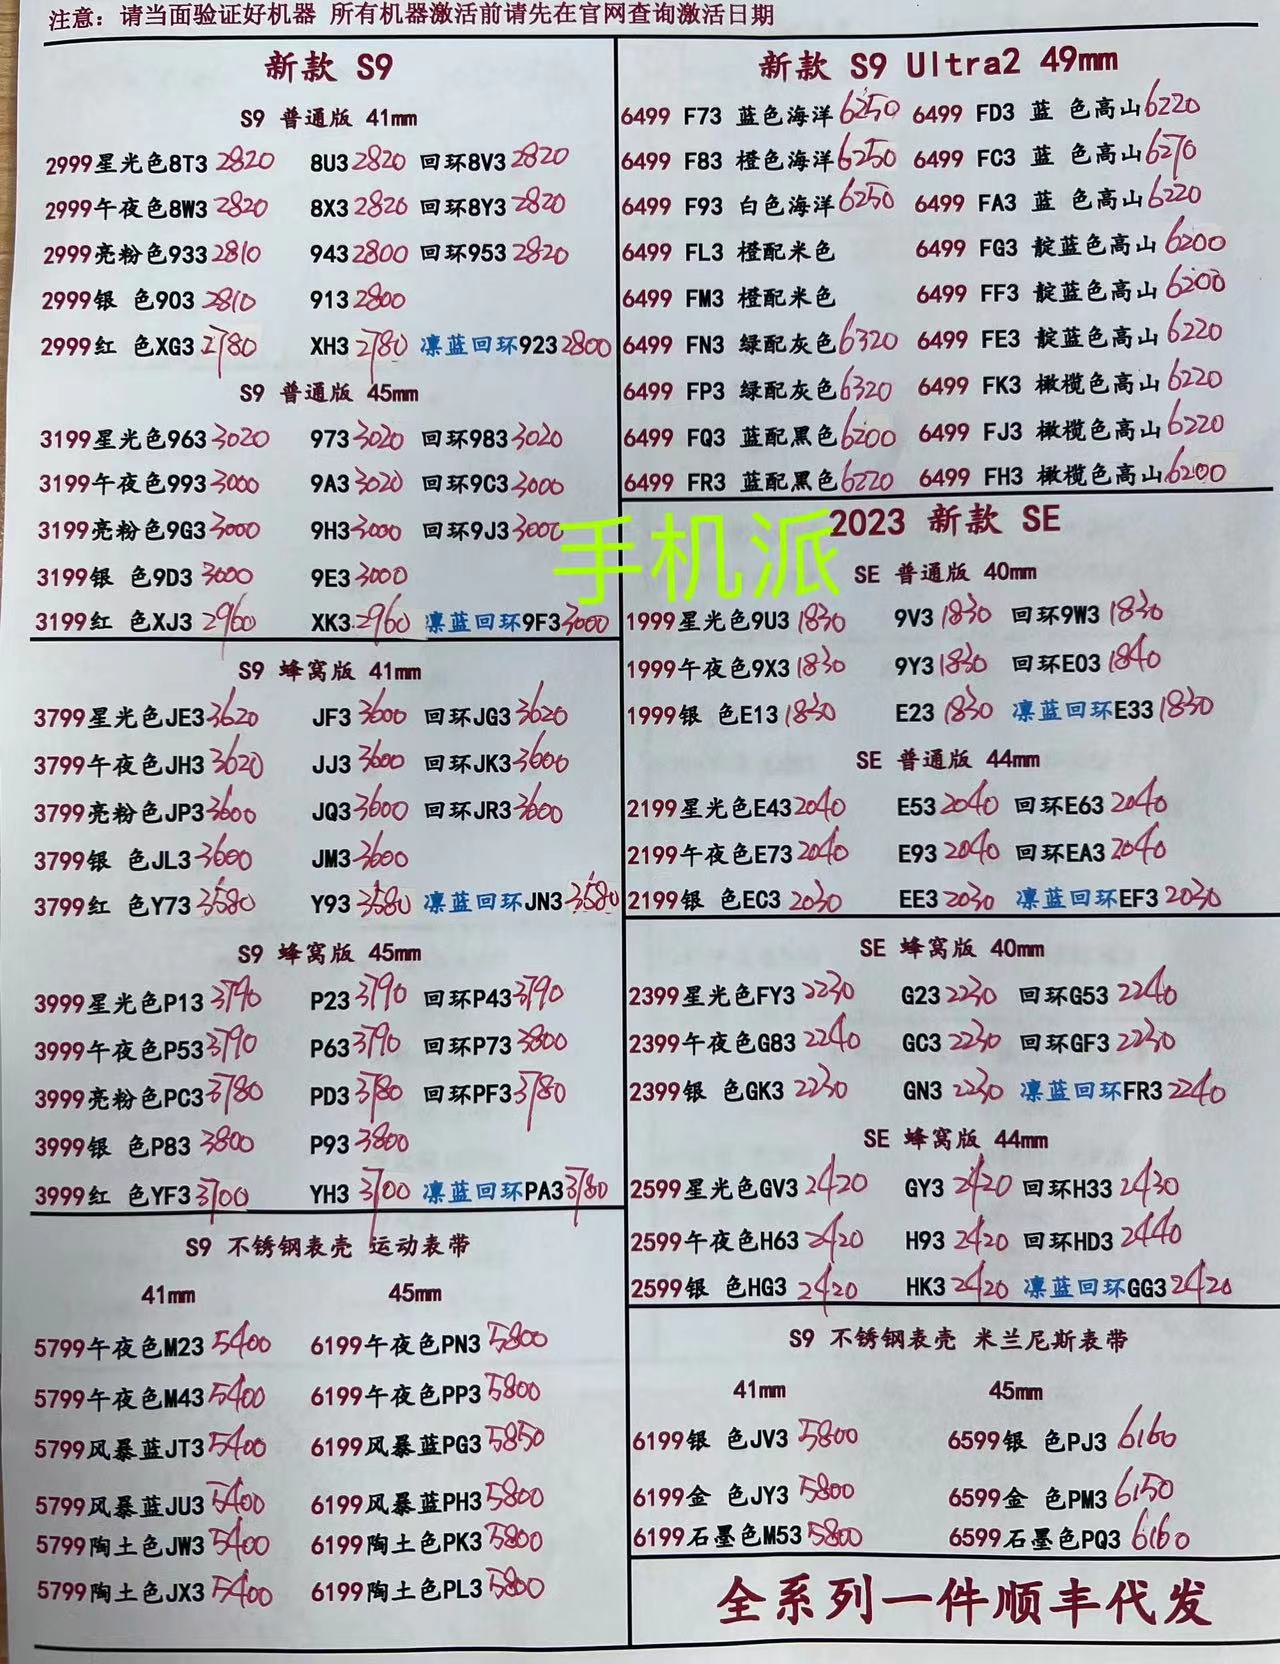 注意：请当面验证好机器 所有机器激活前请先在官网查询激活日期
新款 S9
S9 普通版 41mm
2999星光色8T3 2820 8U3 2820 回环8V3 2820
2999午夜色8W3 2820 8X3 2820 回环8Y3 2820
2999亮粉色933 2810 943 2800 回环953 2820
2999银 色903 2810 913 2800
2999红 色XG3 2780 XH3 2780 凛蓝回环923 2800
S9 普通版 45mm
3199星光色963 3020 973 3020 回环983 3020
3199午夜色993 3000 9A3 3020 回环9C3 3000
3199亮粉色9G3 3000 9H3 3000 回环9J3 3000
3199银 色9D3 3000 9E3 3000
3199红 色XJ3 2960 XK3 2960 凛蓝回环9F3 3000
S9 蜂窝版 41mm
3799星光色JE3 3620 JF3 3600 回环JG3 3620
3799午夜色JH3 3620 JJ3 3600 回环JK3 3600
3799亮粉色JP3 3600 JQ3 3600 回环JR3 3600
3799银 色JL3 3600 JM3 3600
3799红 色Y73 3580 Y93 3580 凛蓝回环JN3 3580
S9 蜂窝版 45mm
3999星光色P13 3790 P23 3790 回环P43 3790
3999午夜色P53 3790 P63 3790 回环P73 3800
3999亮粉色PC3 3780 PD3 3780 回环PF3 3780
3999银 色P83 3800 P93 3800
3999红 色YF3 3700 YH3 3700 凛蓝回环PA3 3780
S9 不锈钢表壳 运动表带
41mm 45mm
5799午夜色M23 5400 6199午夜色PN3 5800
5799午夜色M43 5400 6199午夜色PP3 5800
5799风暴蓝JT3 5400 6199风暴蓝PG3 5850
5799风暴蓝JU3 5400 6199风暴蓝PH3 5800
5799陶土色JW3 5400 6199陶土色PK3 5800
5799陶土色JX3 5400 6199陶土色PL3 5800
新款 S9 Ultra2 49mm
6499 F73 蓝色海洋 6250 6499 FD3 蓝 色高山 6220
6499 F83 橙色海洋 6250 6499 FC3 蓝 色高山 6270
6499 F93 白色海洋 6250 6499 FA3 蓝 色高山 6220
6499 FL3 橙配米色 6499 FG3 靛蓝色高山 6200
6499 FM3 橙配米色 6499 FF3 靛蓝色高山 6200
6499 FN3 绿配灰色 6320 6499 FE3 靛蓝色高山 6220
6499 FP3 绿配灰色 6320 6499 FK3 橄榄色高山 6220
6499 FQ3 蓝配黑色 6200 6499 FJ3 橄榄色高山 6220
6499 FR3 蓝配黑色 6220 6499 FH3 橄榄色高山 6200
手机派
2023 新款 SE
SE 普通版 40mm
1999星光色9U3 1830 9V3 1830 回环9W3 1830
1999午夜色9X3 1830 9Y3 1830 回环E03 1840
1999银 色E13 1830 E23 1830 凛蓝回环E33 1830
SE 普通版 44mm
2199星光色E43 2040 E53 2040 回环E63 2040
2199午夜色E73 2040 E93 2040 回环EA3 2040
2199银 色EC3 2030 EE3 2030 凛蓝回环EF3 2030
SE 蜂窝版 40mm
2399星光色FY3 2230 G23 2230 回环G53 2240
2399午夜色G83 2240 GC3 2230 回环GF3 2230
2399银 色GK3 2230 GN3 2230 凛蓝回环FR3 2240
SE 蜂窝版 44mm
2599星光色GV3 2420 GY3 2420 回环H33 2430
2599午夜色H63 2420 H93 2420 回环HD3 2440
2599银 色HG3 2420 HK3 2420 凛蓝回环GG3 2420
S9 不锈钢表壳 米兰尼斯表带
41mm 45mm
6199银 色JV3 5800 6599银 色PJ3 6160
6199金 色JY3 5800 6599金 色PM3 6150
6199石墨色M53 5800 6599石墨色PQ3 6160
全系列一件顺丰代发